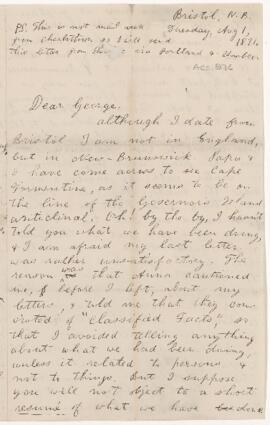 Bristol, N.B.
Tuesday, Aug 1, 1871.
PS. This is not mail
from Charlottetown so I will send
this letter from there via Portland &
Acc 576
Dear George,
Although I date from
Bristol I am not in England,
but in New-Brunswick. Papa &
I have come across to see Cape
Tormentine, as it seems to be on
the line of the Governors Island
anticlinal. Oh! by the by, I havn't
told you what we have been doing,
& I am afraid my last letter
was rather unsatisfactory. The
reason was that Anna cautioned
me, before I left, about my
letters, & told me that they con-
sisted of "Classified Facts", so
that I avoided telling anything
about what we had been doing,
unless it related to persons &
not to things. But I suppose
you will not object to a short
resume of what we have done